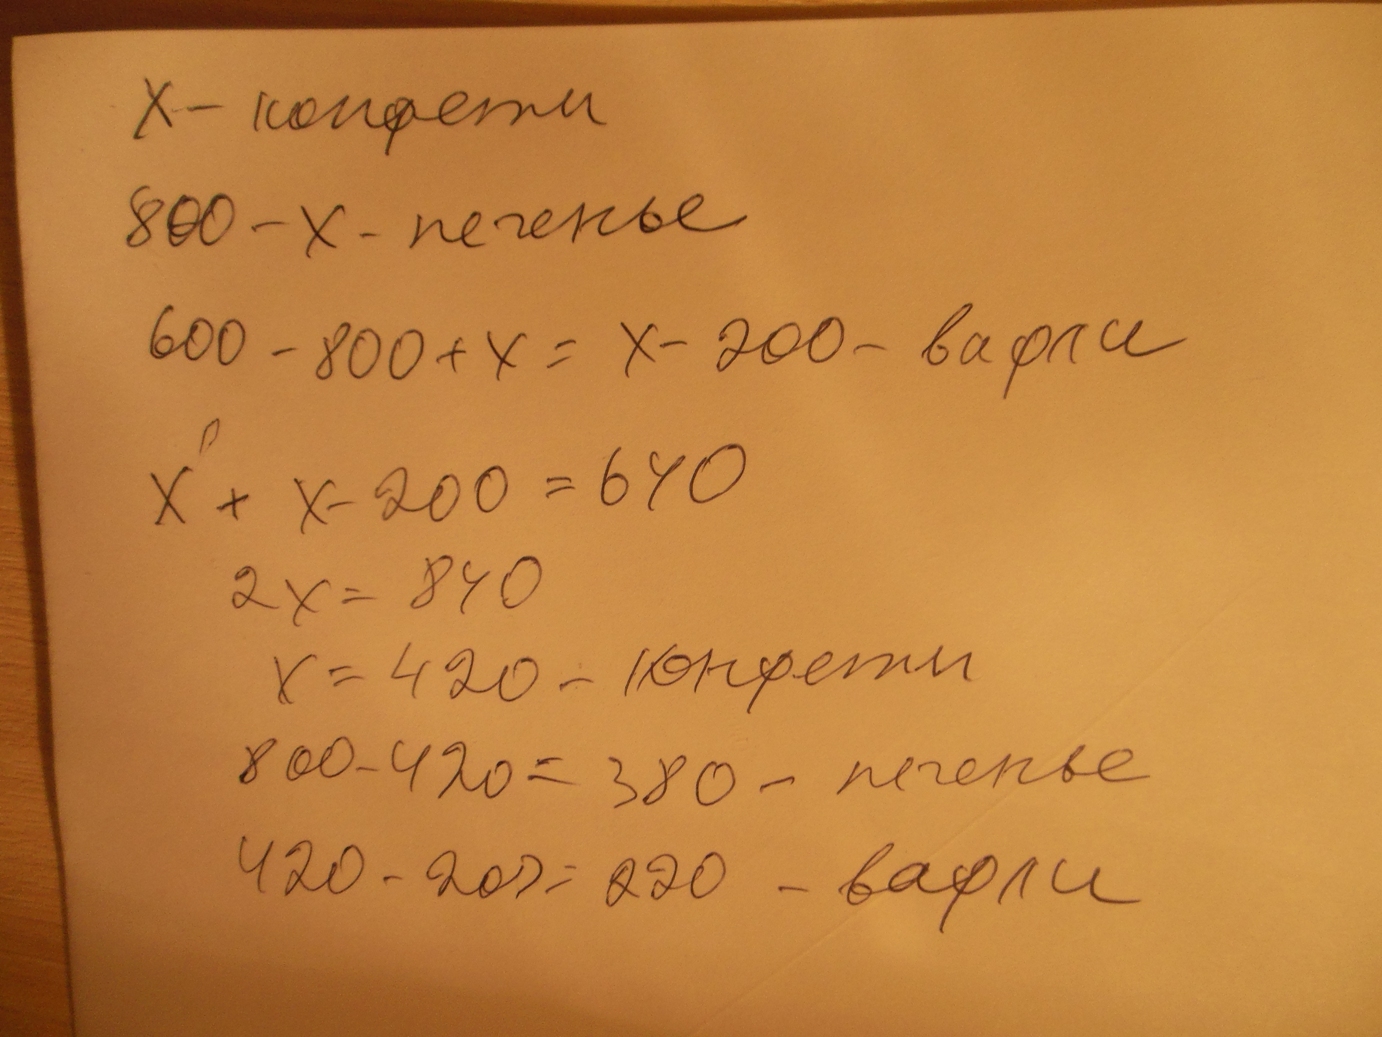 X - конфеты
800 - X - печенье
600 - 800 + X = X - 200 - вафли
X + X - 200 = 640
2X = 840
X = 420 - конфеты
800 - 420 = 380 - печенье
420 - 200 = 220 - вафли